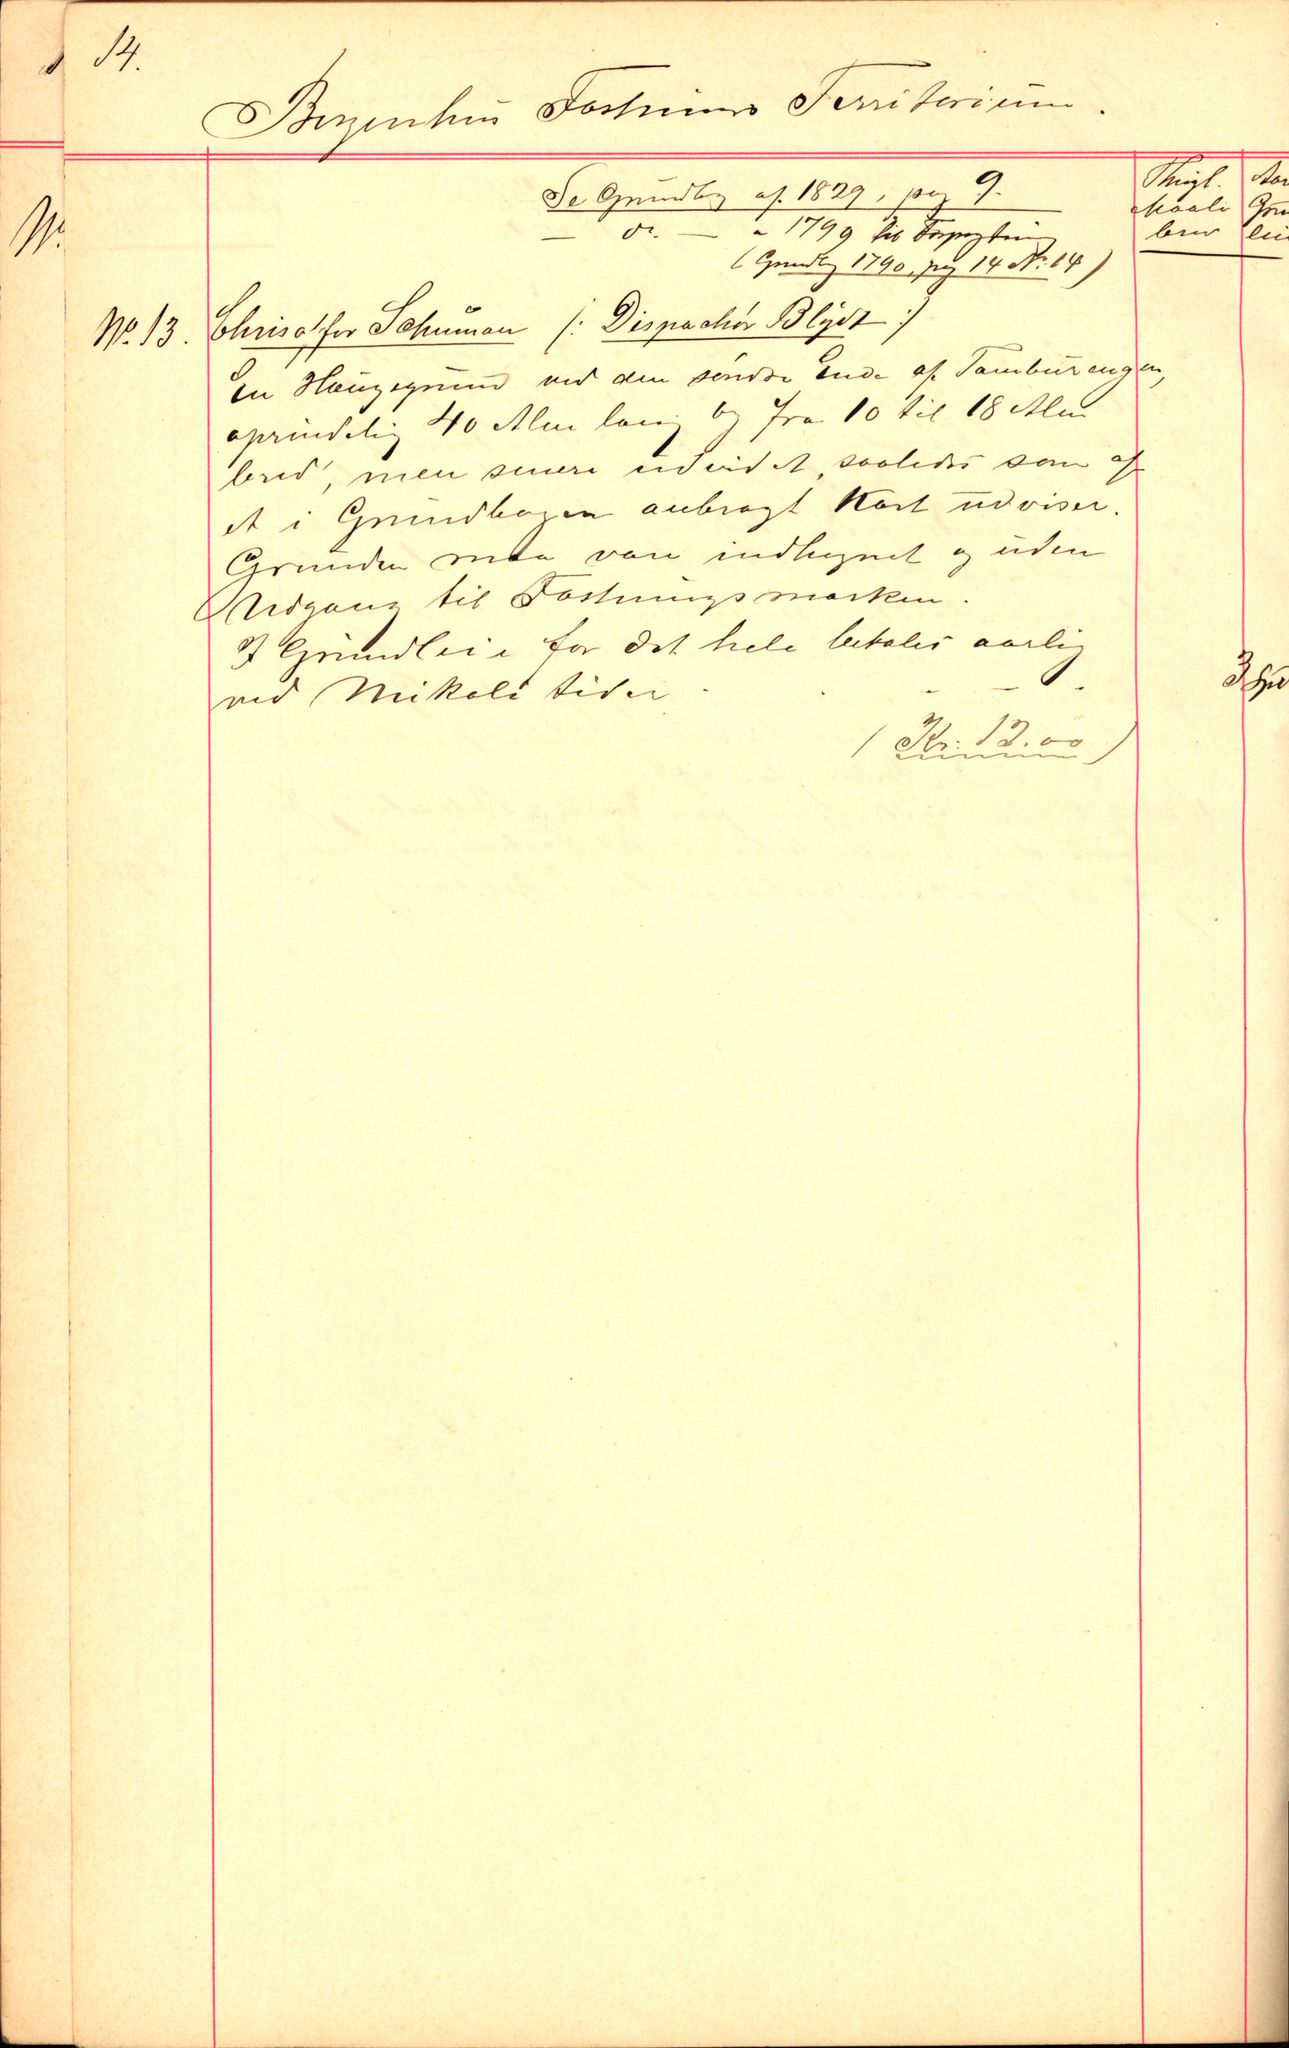 14.
Bergenhus Fæstnings Territorium.
Se Grundbg af 1829, pag 9.
— do. — " 1799 
(Grundbg 1790, pag 14 No. 14)
Thingl.
Maale
brev
No. 13. Christoffer Schuman /: Dispachør Blydt :/
En Haugegrund ved den søndre Ende af Tambúrengen,
oprindelig 40 Alen lang og fra 10 til 18 Alen
bred, men senere udvidet, saaledes som af
et i Grundbogen anbragt Kart udviser.
Grunden maa være indhegnet og uden
Nedgang til Fæstningsmarken.
I Grundleie for det hele betales aarlig
ved Mikeli tider - - -
(Kr. 12.00)